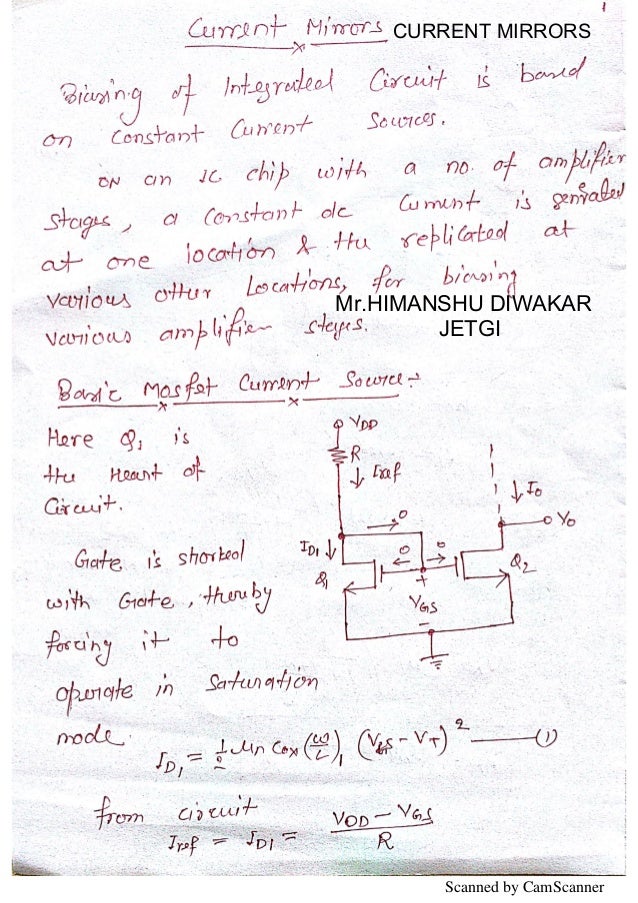 1
Current Mirrors CURRENT MIRRORS
Biasing of Integrated Circuit is based
on constant Current Sources.
ON an IC chip with a no. of amplifier
stages, a constant dc Current is genrated
at one location & the replicated at
various other Locations, for biasing
Mr.HIMANSHU DIWAKAR
various amplifier stages.
JETGI
Basic Mosfet Current Source:-
Here Q1 is
the Heart of
Circuit.
Gate is shorted
with Gate, thereby
forcing it to
operate in Saturation
mode.
VDD
R
Iref
Io
Vo
0
ID1
0
0
Q1
Q2
+
VGS
-
ID1 = 1/2 μn Cox (W/L)1 (VGS - VT)2 —— (1)
from circuit
Iref = ID1 = VDD - VGS / R
Scanned by CamScanner